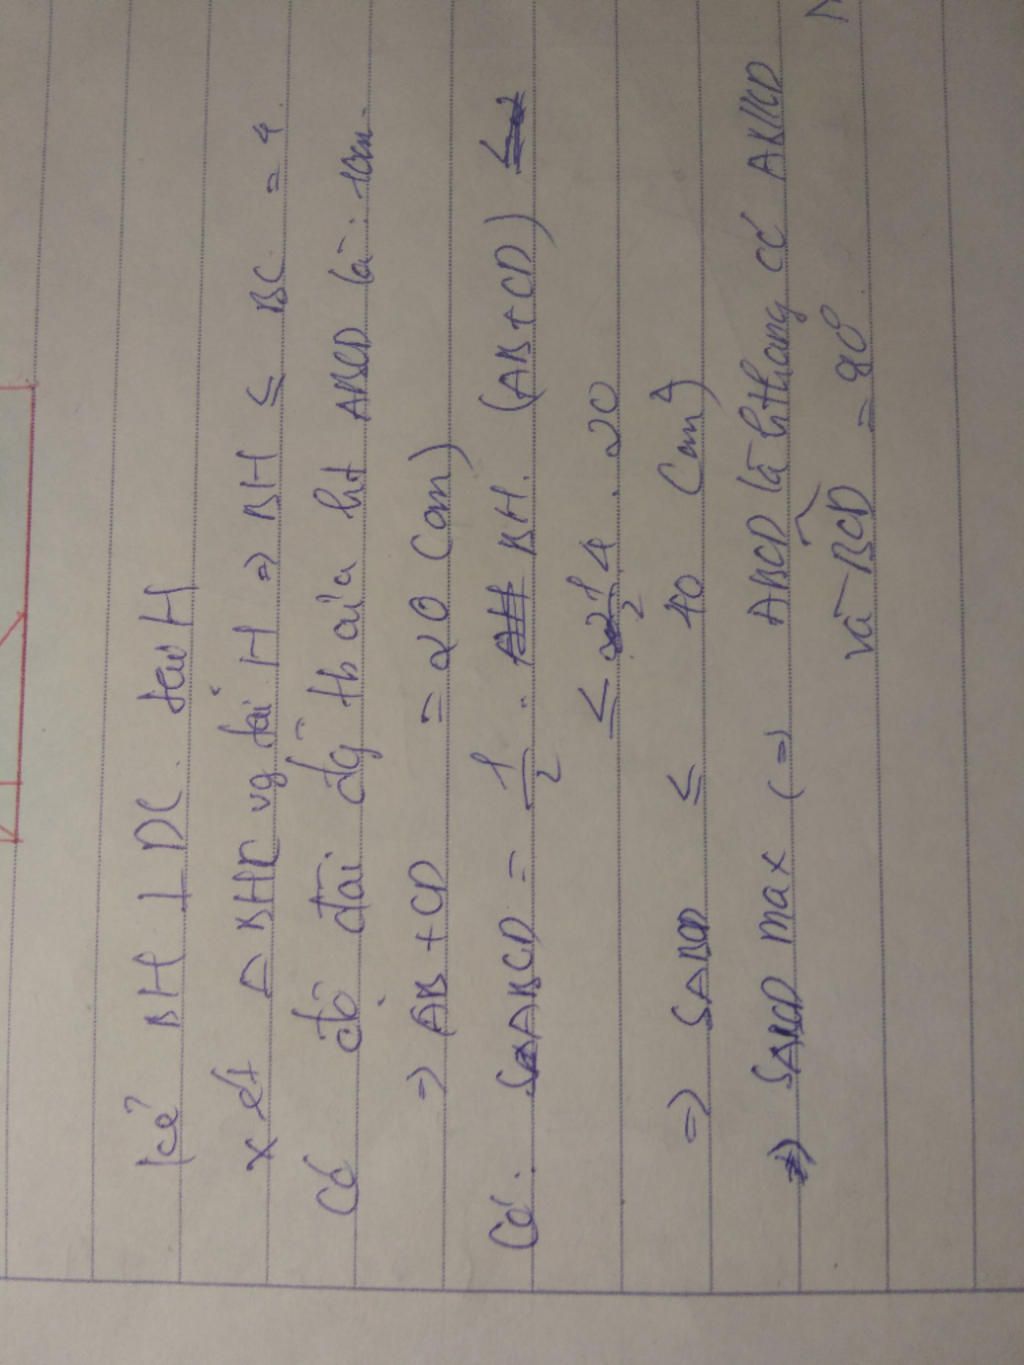 Kẻ BH ⊥ DC tại H
Xét △BHC vg tại H => BH ≤ BC = 4
Có độ dài đg tb của ht ABCD là: 10cm.
=> AB + CD = 20 (cm)
Có: SABCD = 1/2 . BH. (AB + CD)
≤ 1/2 4 . 20
=> SABCD ≤ 40 (cm²)
=> SABCD max (=) ABCD là hthang có AB//CD
và BCD = 90°